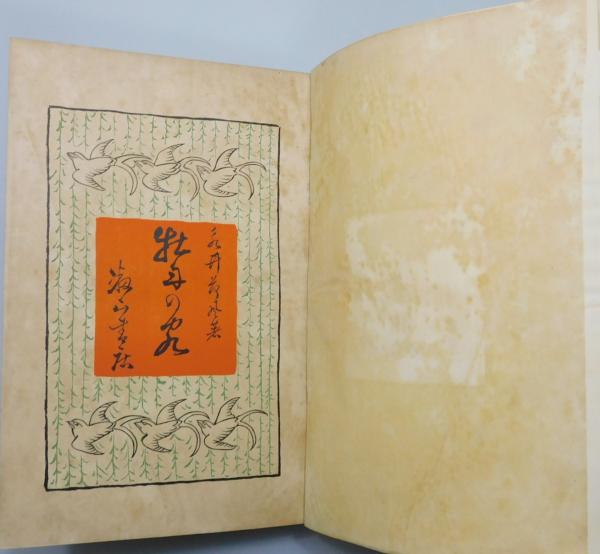 永井荷風著
牡丹の客
籾山書店